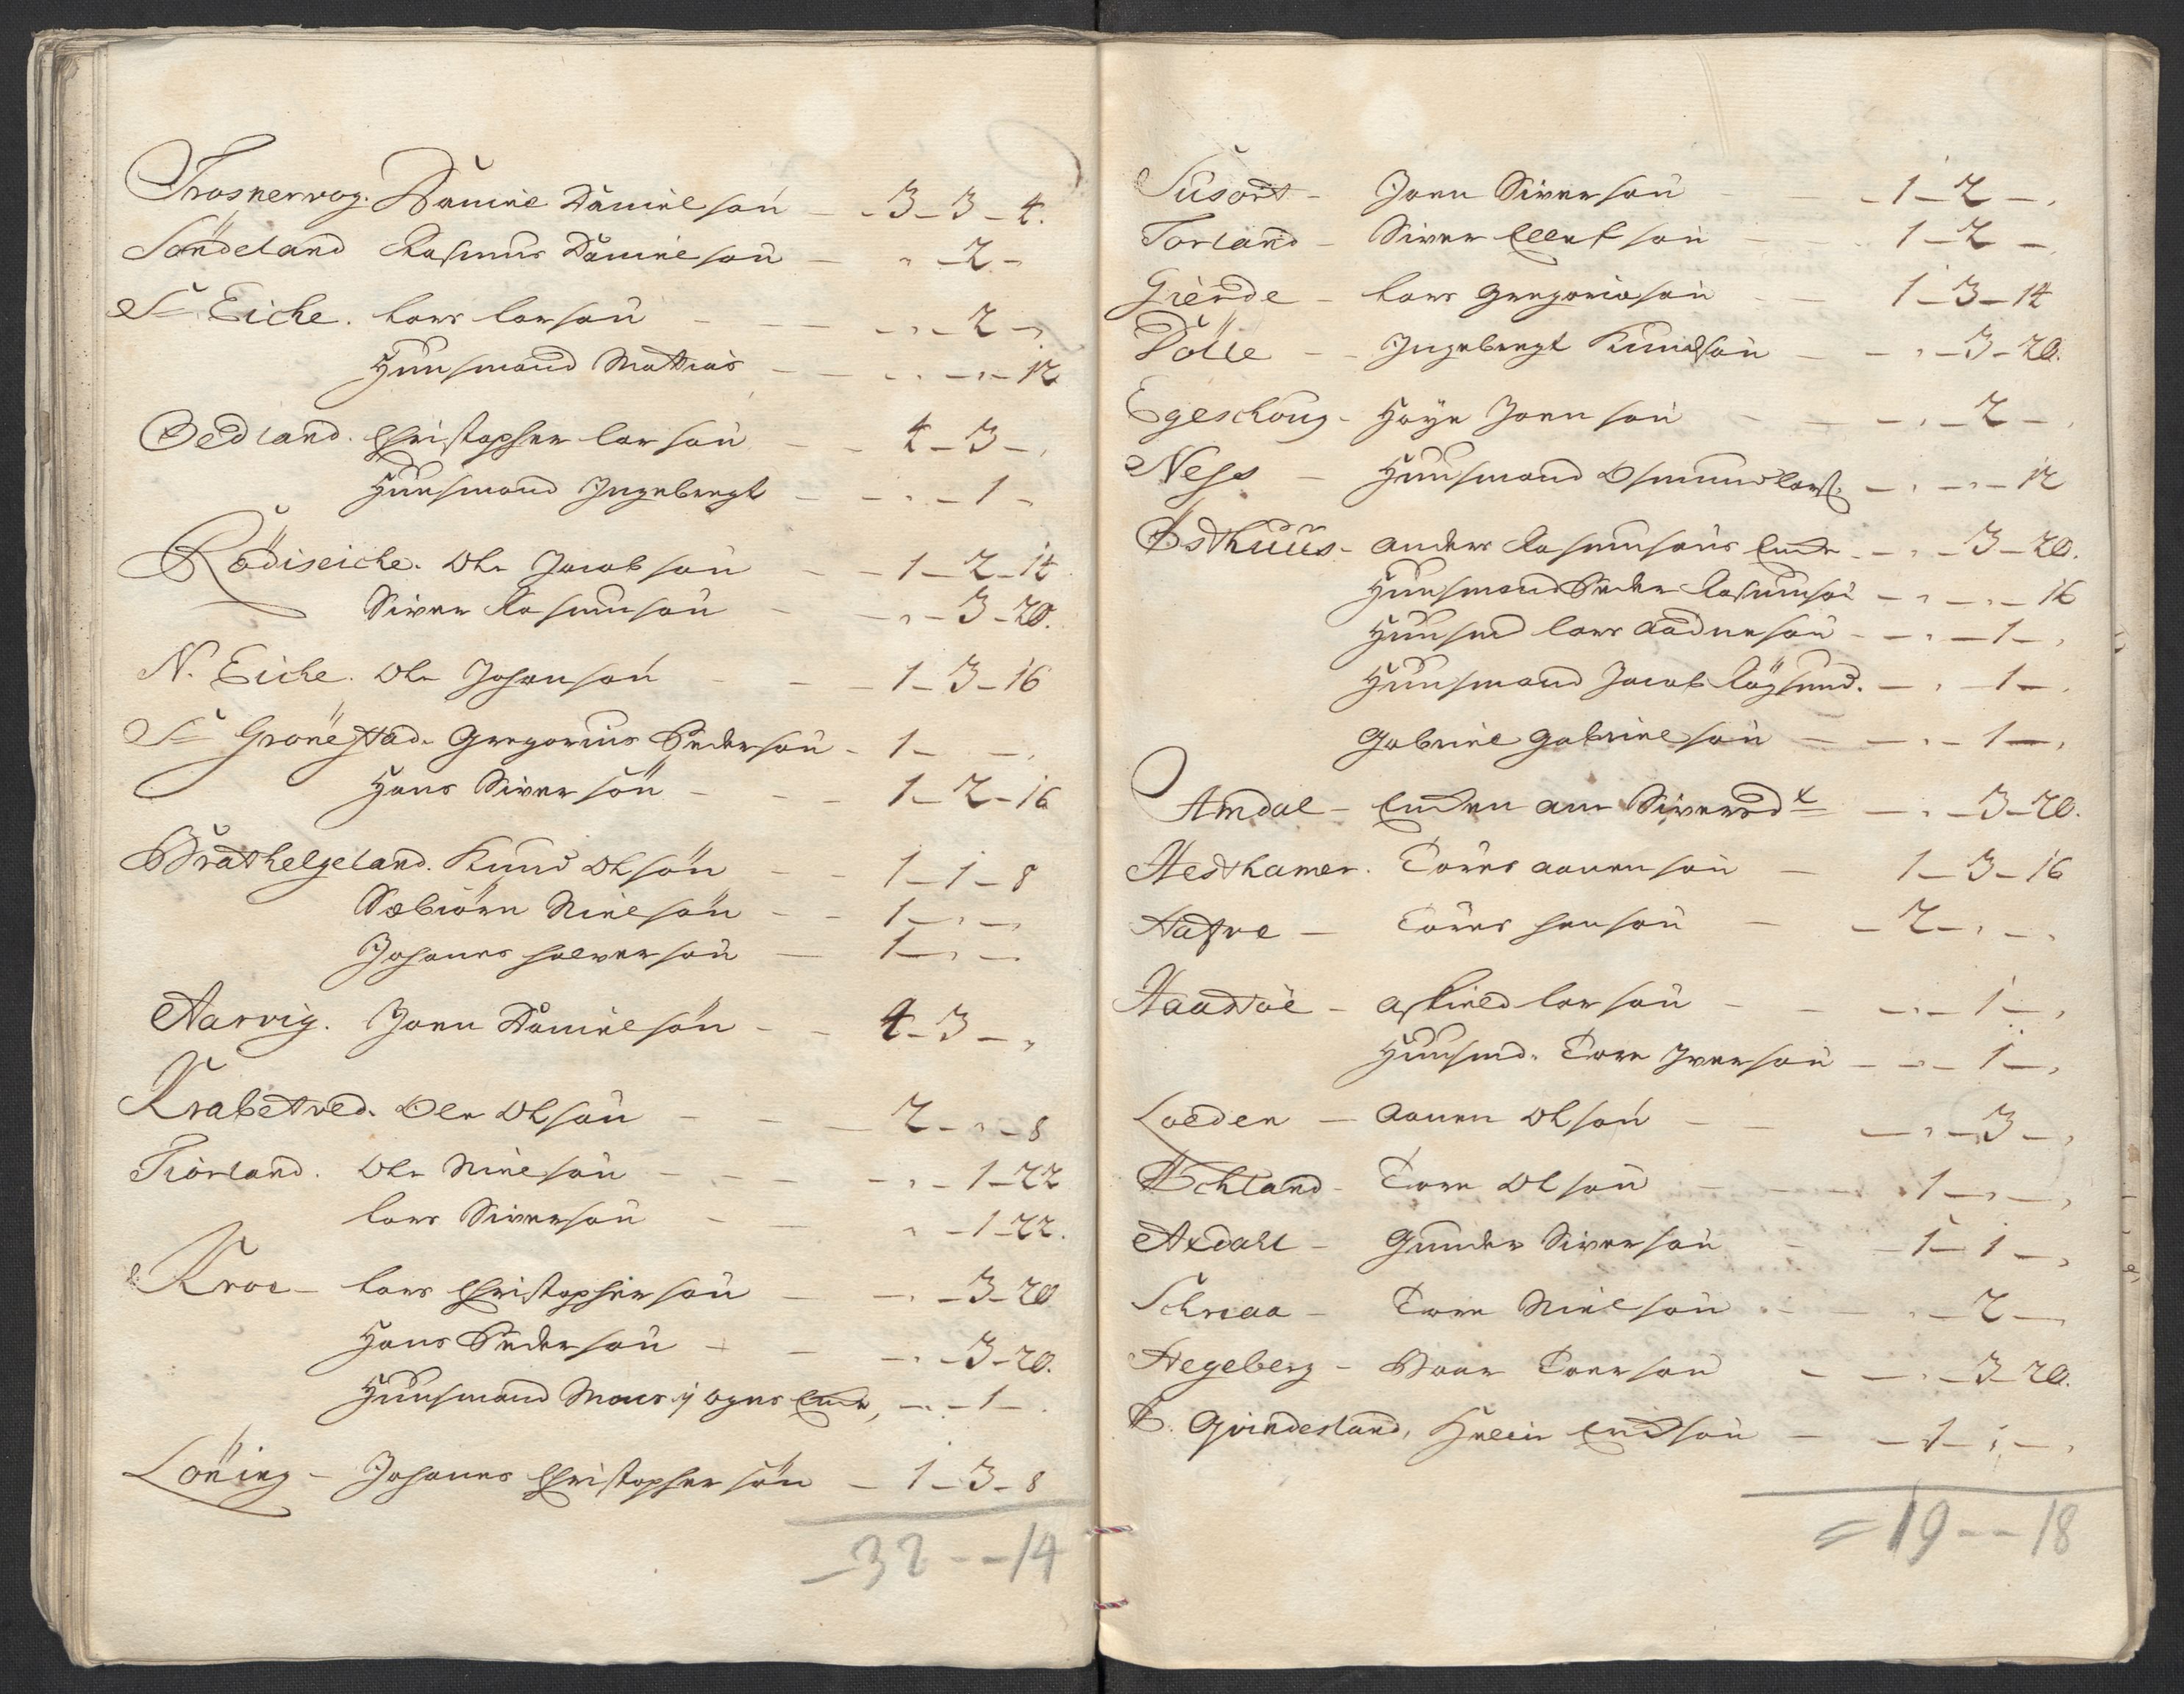 Trosnervog. Daniel Danielsøn - - 3 - 3 - 4.
Söndeland Rasmus Danielsøn - " - 2 -
S: Eiche. Lars Larsøn - - - " - 2 - "
Huusmand Mathias - - - " - " - 12
Oedland. Christopher Larsøn - 4 - 3 - "
Huusmand Ingebregt - - " - 1 -
Rödiseiche. Ole Jacobsøn - - 1 - 2 - 14
Siver Rasmusøn - - " - 3 - 20.
N. Eiche. Ole Johansøn - - 1 - 3 - 16
S: Grönestad. Gregorius Pedersøn - 1 - - "
Hans Siversøn - - - 1 - 2 - 16
Brathelgeland. Knud Olsøn - - 1 - 1 - 8
Sæbiörn Nielsøn - - 1 - " - "
Johannes Halversøn - 1 - " -
Aarvig. Joen Danielsøn - - 4 - 3 - "
Krabetved. Ole Olsøn - - - 2 - " - 8
Tiörland. Ole Nielsøn - - - " - 1 - 22
Lars Siversøn - - " - 1 - 22.
Kroe - Lars Christophersøn - - " - 3 - 20
Hans Pedersøn - - - " - 3 - 20.
Huusmand Mons - - " - 1 - .
Löning - Johannes Christophersøn - 1 - 3 - 8
- 32 - - 14
Susort - Joen Siversøn - - 1 - 2 - "
Torland - Siver Ellertsøn - - 1 - 2 -
Gierde - Lars Gregoriusøn - - 1 - 3 - 14
Dölle - - Ingebregt Knudsøn - - " - 3 - 20.
Egeschoug - Joensøn - - - " - 2 - "
Ness - Huusmand Osmund Lars: - " - " - 12
Østhuus - Anders Rasmusøns Encke - - " - 3 - 20.
Huusmand Peder Rasmusøn - " - " - 16
Huusmd Lars Aadnesøn - - " - 1 - "
Huusmand Jacob - " - 1 - "
Gabriel Gabrielsøn - - " - 1 - "
Amdal - Encken Ane Siversd: - " - 3 - 20.
Hesthamer. Tøres Aanensøn - 1 - 3 - 16
Hatve - Tøres Hansøn - - 2 - " - "
Haadtöe - Aslried Larsøn - - " - 1 - "
Huusmd. Tore Iversøn - " - 1 - "
Loeden - Aanen Olsøn - - - " - 3 - "
Øchland - Tore Olsøn - - - 1 - " - "
Axdahl - Gunder Siversøn - - 1 - 1 - "
Schreaa - Tore Nielsøn - - " - 2 -
Hegeberg - Toersøn - - " - 3 - 20.
Ø. Qvindesland, Helle Endsøn - - 1 - 1 - "
= 19 - - 18